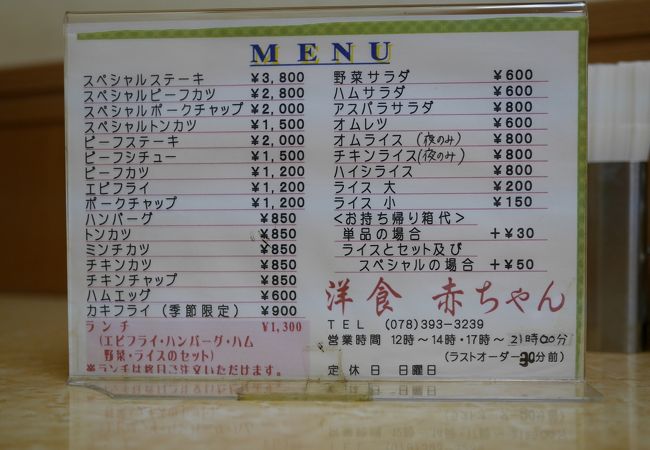 MENU
スペシャルステーキ ¥3,800
スペシャルビーフカツ ¥2,800
スペシャルポークチャップ ¥2,000
スペシャルトンカツ ¥1,500
ビーフステーキ ¥2,000
ビーフシチュー ¥1,500
ビーフカツ ¥1,200
エビフライ ¥1,200
ポークチャップ ¥1,200
ハンバーグ ¥850
トンカツ ¥850
ミンチカツ ¥850
チキンカツ ¥850
チキンチャップ ¥850
ハムエッグ ¥600
カキフライ (季節限定) ¥900
ランチ ¥1,300
(エビフライ・ハンバーグ・ハム
野菜・ライスのセット)
※ランチは終日ご注文いただけます。
野菜サラダ ¥600
ハムサラダ ¥600
アスパラサラダ ¥800
オムレツ ¥600
オムライス (夜のみ) ¥800
チキンライス(夜のみ) ¥800
ハイシライス ¥800
ライス 大 ¥200
ライス 小 ¥150
<お持ち帰り箱代>
単品の場合 +¥30
ライスとセット及び
スペシャルの場合 +¥50
洋食 赤ちゃん
TEL (078)393-3239
営業時間 12時~14時・17時~21時00分
(ラストオーダー30分前)
定休日 日曜日